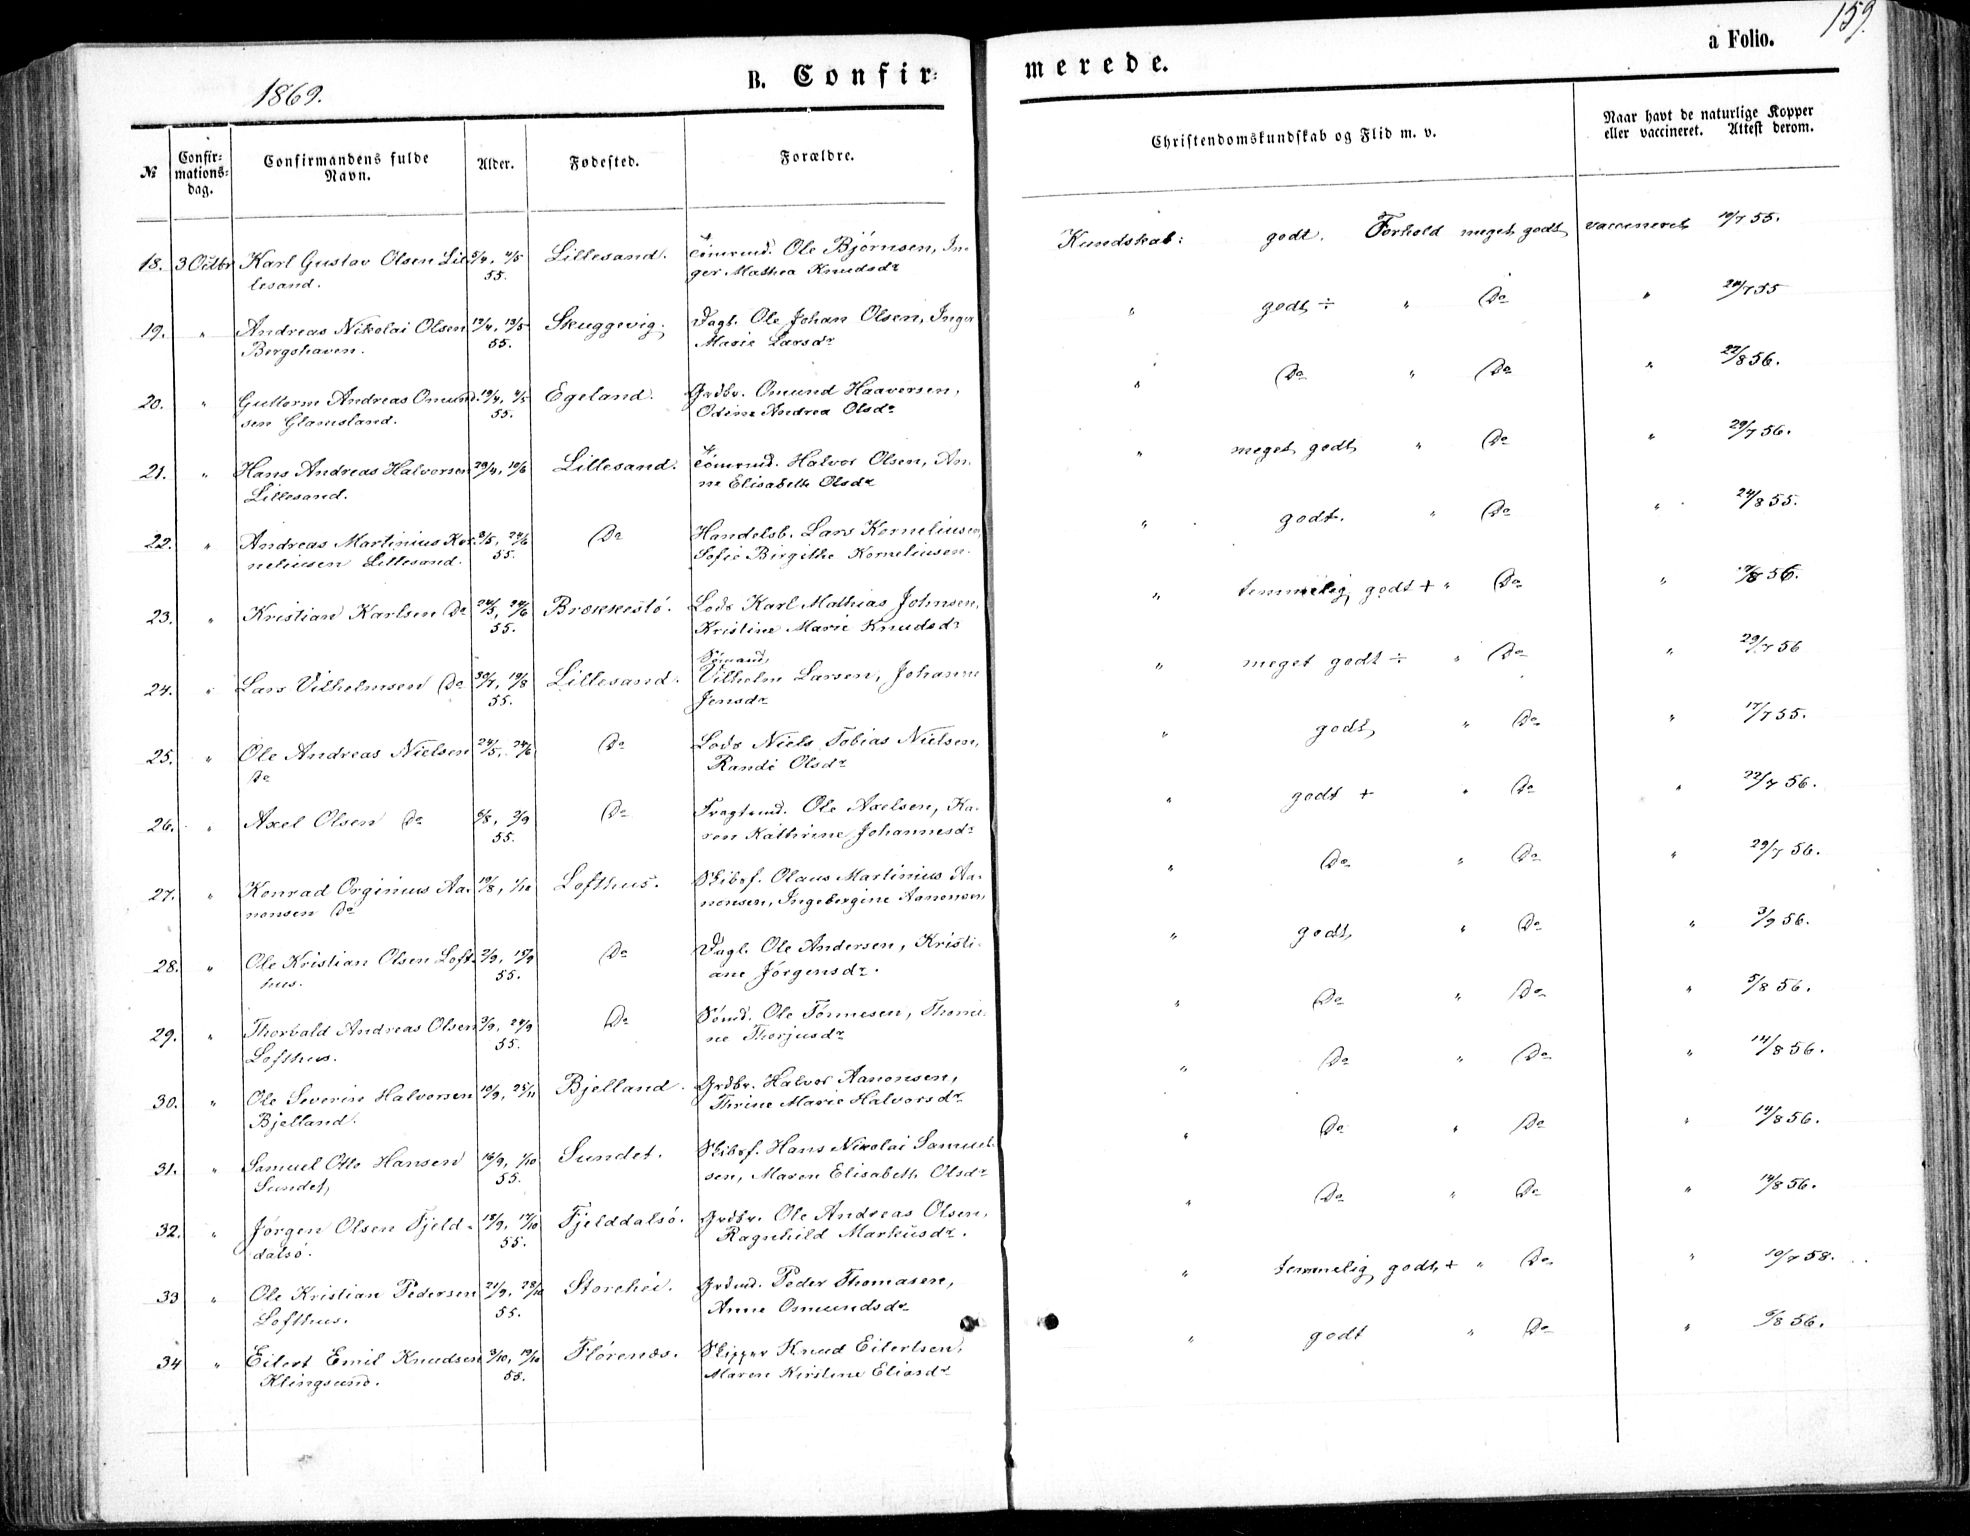 1869.
B. Confir-
merede.
a Folio.
159.
№
Confir-
mations-
dag.
Confirmandens fulde
Navn.
Alder.
Fødested.
Forældre.
Christendomskundskab og Flid m. v.
Naar havt de naturlige Kopper
eller vaccineret. Attest derom.
18. 3 Octbr Karl Gustav Olsen Lil- Lillesand. Tömrmd. Ole Björnsen, In- Kundskab: godt. Forhold meget godt vaccineret 19/7 55.
lesand. 55. ger Mathea Knudsdr
19. " Andreas Nikolai Olsen 12/4, 13/5 Skuggevig. Dagl. Ole Johan Olsen, Inger " godt ÷ " Do " 24/7 55
Bergshaven. 55. Marie Larsdr
20. " Guttorm Andreas Omund- 19/4, Egeland. Grdbr. Omund Haaversen, " Do " Do " 22/8 56.
sen Glamsland. 55. Odine Andrea Olsdr
21. " Hans Andreas Halvorsen 29/4, 10/6 Lillesand. Tömrmd. Halvor Olsen, An- " meget godt " Do " 29/7 56.
Lillesand. ne Elisabeth Olsdr
22. " Andreas Martinius Kor- 24/6 Do Handelsb. Lars Korneliusen, " godt. " Do " 24/8 55.
neliusen Lillesand. 55. Sofie Birgithe Korneliusen.
23. " Kristian Karlsen Do 24/5, 24/6 Brækkestö. Lods Karl Mathias Johnsen, " temmelig godt + " Do "
55. Kristine Marie Knudsdr
Sömand,
24. " Lars Vilhelmsen Do 30/7, 19/8 Lillesand. Vilhelm Larsen, Johanne " meget godt ÷ " Do " 29/7 56
55. Jensdr
25. " Ole Andreas Nielsen 24/5, 24/6 Do Lods Niels Tobias Nielsen, " godt, " Do " 17/7 55.
Do Randi Olsdr
26. " Axel Olsen Do 6/8, 2/9 Do Fragtmd. Ole Axelsen, Ka- " godt + " Do " 22/7 56.
55. ren Kathrine Johannesdr
27. " Konrad Orginius Aa- 19/8, 1/10 Lofthus. Skibsf. Olaus Martinius Aa- " Do " Do " 29/7 56.
nonsen Do nonsen, Ingebergine Aanonsen
28. " Ole Kristian Olsen Loft- 2/9, 15/9 Do Dagl. Ole Andersen, Kristi- " godt, " Do " 3/9 56.
hus. 55. ane Jörgensdr.
29. " Thorbald Andreas Olsen 3/9, 24/9 Do Sömd. Ole Tönnesen, Thomi- " Do " Do " 5/8 56.
Lofthus. 55. ne Thorjusdr
30. " Ole Severin Halvorsen 10/9, 25/11 Bjelland. Grdbr. Halvor Aanonsen, " Do " Do " 14/8 56.
Bjelland. Thrine Marie Halvorsdr
31. " Samuel Otto Hansen 16/9, 1/10 Sundet. Skibsf. Hans Nikolai Samuel- " Do " Do " 14/8 56.
Sundet, 55. sen, Maren Elisabeth Olsdr
32. " Jörgen Olsen Fjeld- 18/9, 14/10 Fjelddalsö. Grdbr. Ole Andreas Olsen, " Do " Do " 14/8 56.
dalsö. 55. Ragnhild Markusdr.
33 " Ole Kristian Pedersen 21/9, 28/10 Storehei. Grdmd. Peder Thomasen, " temmelig godt + " Do " 10/7 58.
Lofthus. 55. Anne Osmundsdr
34 " Eilert Emil Knudsen 3/10, 19/10 Flörenæs. Skipper Knud Eilertsen, " godt " Do " 6/8 56.
Klingsund. 55. Maren Kirstine Eliasdr